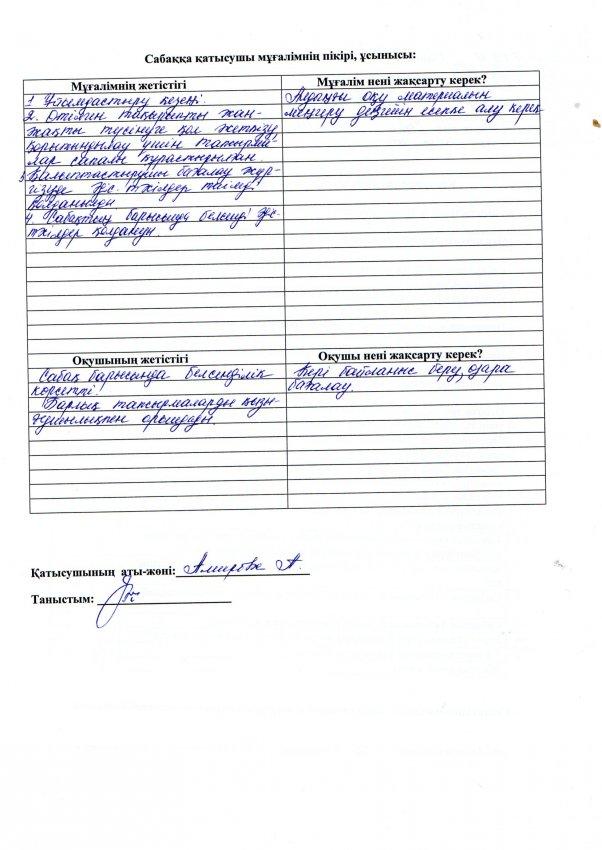 Сабаққа қатысушы мұғалімнің пікірі, ұсынысы:
Мұғалімнің жетістігі
1 Ұйымдастыру кезеңі.
2. Өтілген тақырыпты жан-
жақты түсінуге қол жеткізу,
қорытындылау үшін тапсырма-
лар сапалы құрастырылған.
3. Қалыптастырушы бағалау жүр-
гізуде әдіс-тәсілдер тиімді
қолданылды.
4. Сабақтың барысында белсенді әдіс-
тәсілдер қолданды.
Мұғалім нені жақсарту керек?
Алдыңғы оқу материалын
меңгеру деңгейін есепке алу керек
Оқушының жетістігі
Сабақ барысында белсенділік
көрсетті.
Барлық тапсырмаларды қызы-
ғушылықпен орындады.
Оқушы нені жақсарту керек?
Кері байланыс беру, өзара
бағалау.
Қатысушының аты-жөні: Амирова А.
Таныстым: